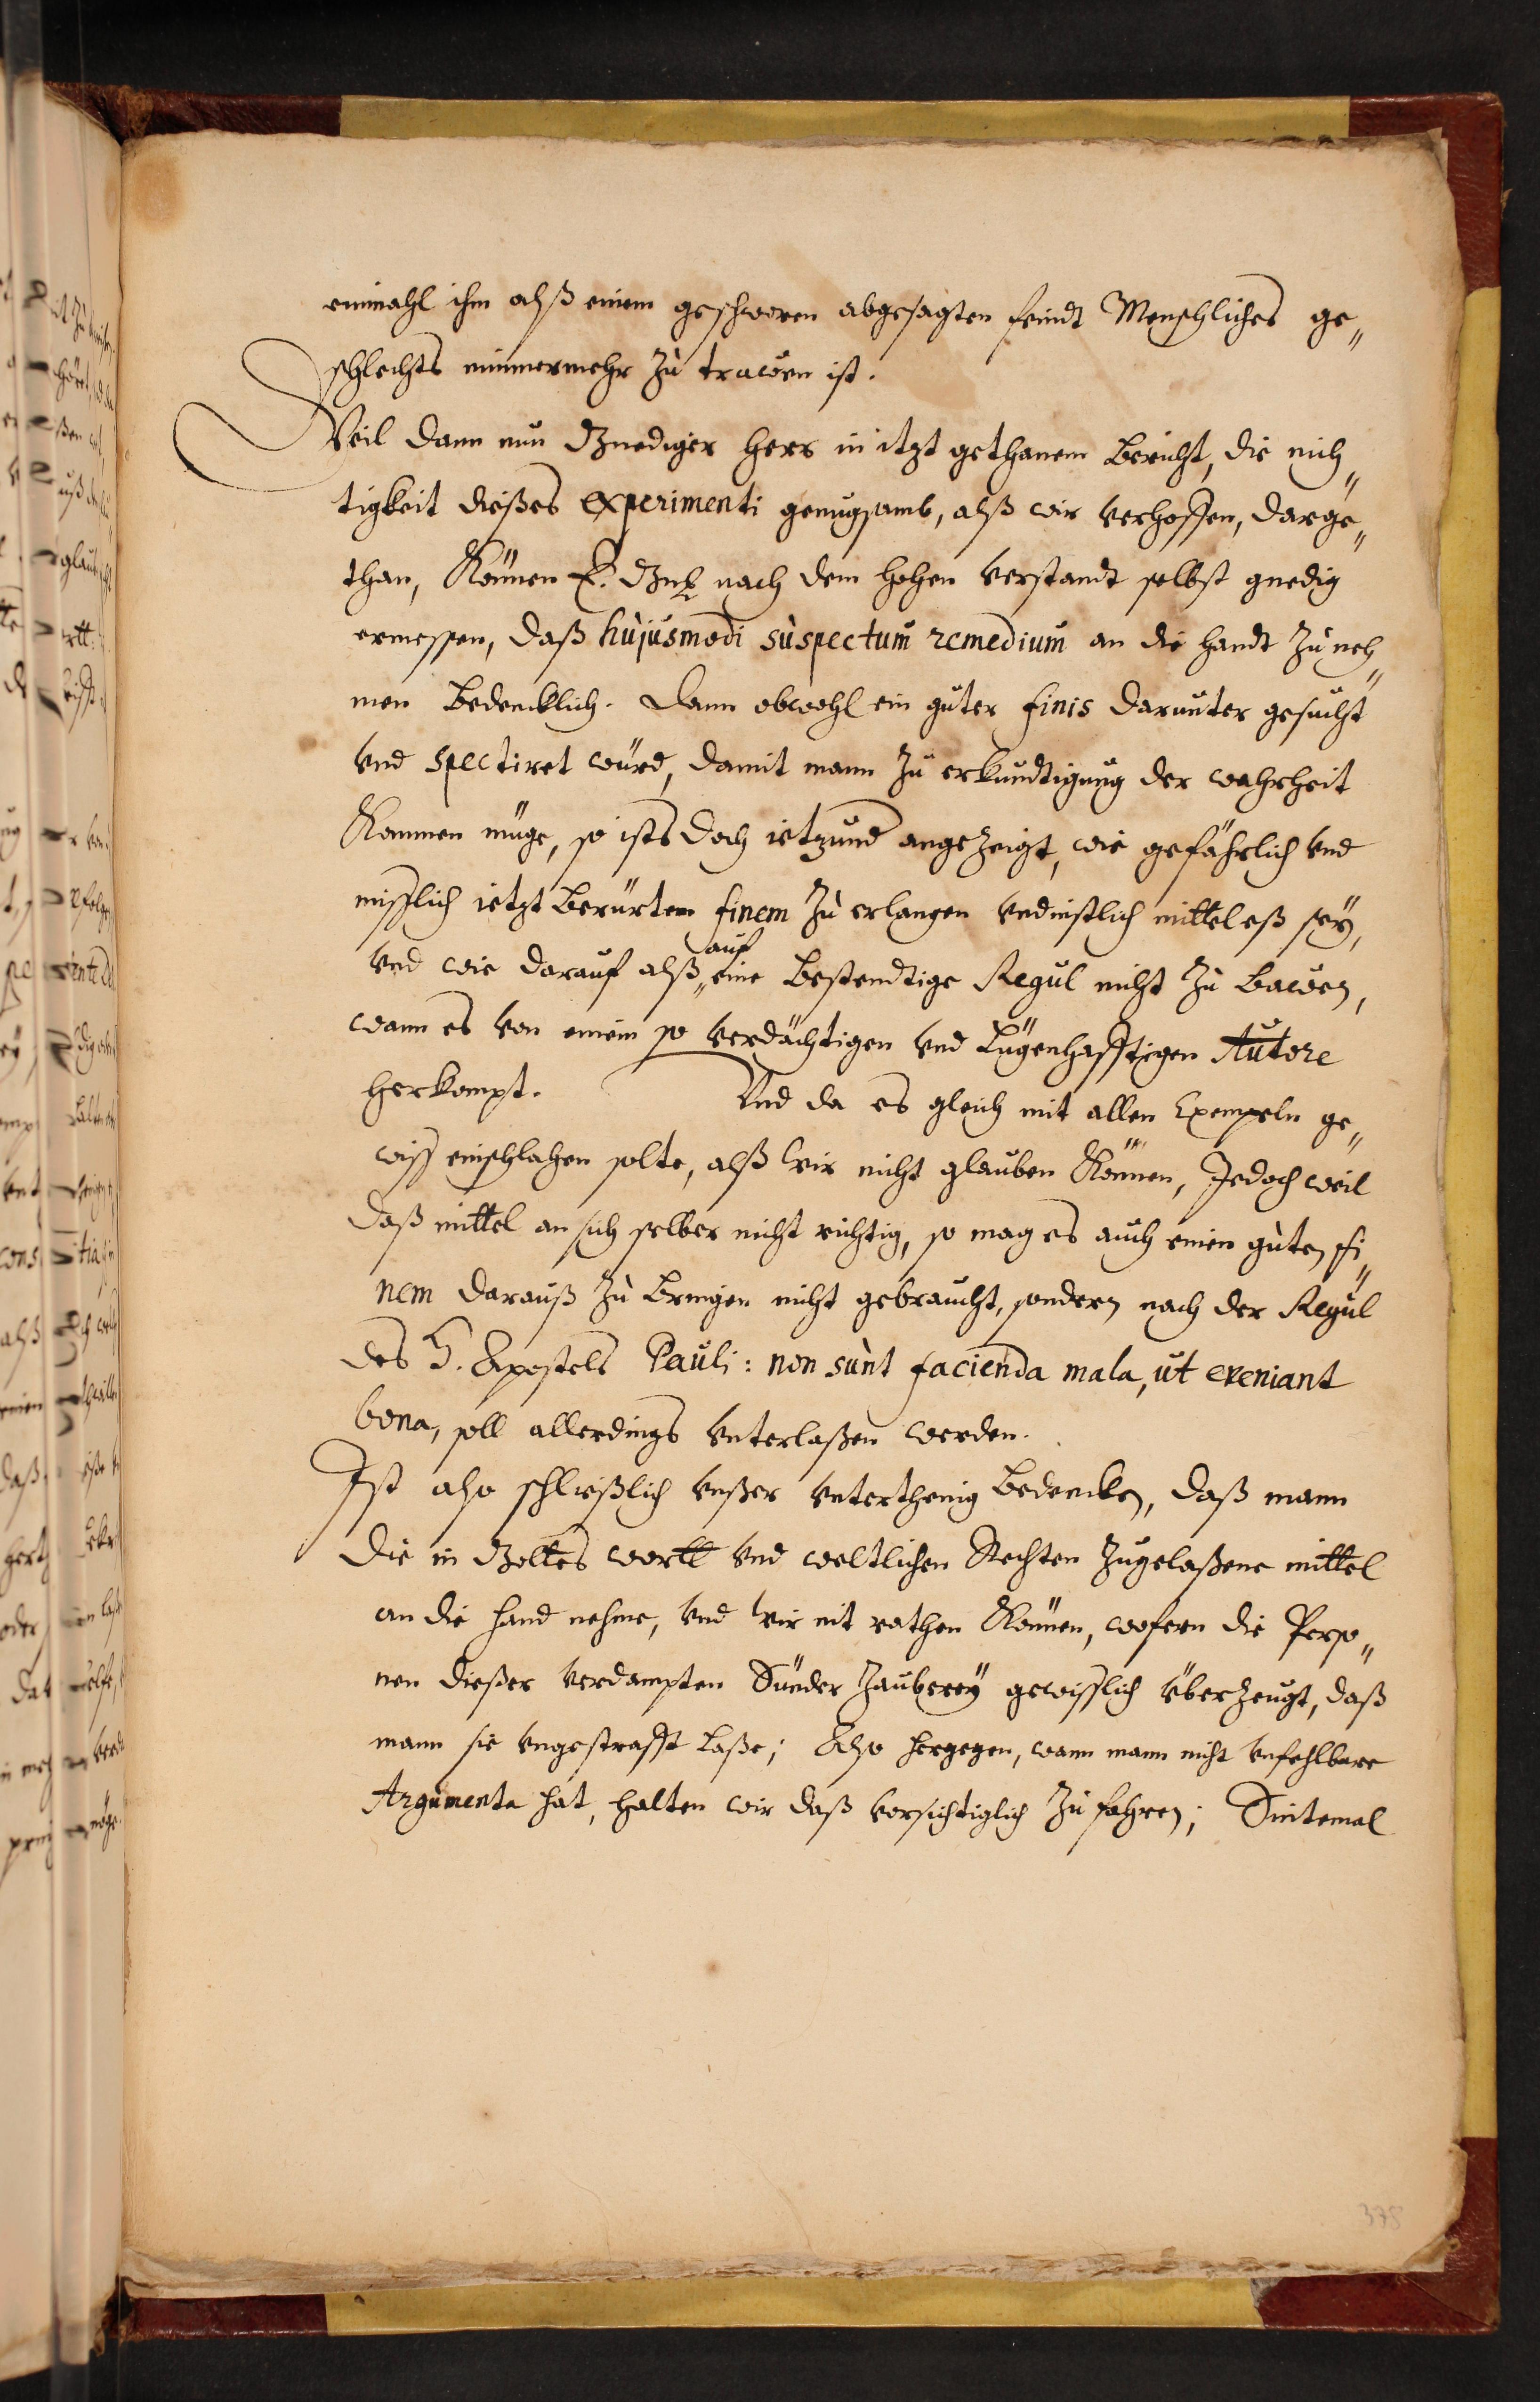 einmahl ihm alß einem geschworen abgesagten feindt Menschliches ge„
schlechts nimmermehr zu trawen ist.
Weil dann nun Gnediger herr in itzt gethanem Bericht, die nich„
tigkeit dießes experimenti genugsamb, alß wir verhoffen, darge„
than, Können E. Gn. nach dem hohen verstandt selbst gnedig
ermessen, daß hujusmodi suspectum remedium an die handt zu neh„
men Bedencklich. Dann obwohl ein guter finis darunter gesucht
vnd spectiret würd, damit mann zu erkundtigung der wahrheit
Kommen müge, so ists doch ietzund angezeigt, wie gefährlich vnd
misslich ietzt Berürten finem zu erlangen vndienstlich mittel eß seÿ,
vnd wie darauf alß „auf eine Bestendtige Regul nicht zu Bawen,
wann es von einem so verdächtigen vnd Lügenhafftigen Autore
herkompt. Vnd da es gleich mit allen Exempeln ge„
wiss einschlahen solte, alß wir nicht glauben Können, Jedoch weil
daß mittel an sich selber nicht richtig, so mag es auch einen guten fi„
nem darauß zu Bringen nicht gebraucht, sondern nach der Regul
des H. Apostels Pauli: non sunt facienda mala, ut eveniant
bona, soll allerdings vnterlaßen werden.
Ist also schließlich vnßer vnterthenig Bedencken, daß mann
die in Gottes wortt vnd weltlichen Rechten zugelaßene mittel
an die hand nehme, vnd wir nit rathen Können, wofern die Perso„
nen dießer verdampten Sünder Zauberey gewisslich überzeugt, daß
mann sie vngestrafft laße; Also hergegen, wann mann nicht vnfehlbare
Argumenta hat, halten wir daß vorsichtiglich zu fahren; Sintemal
375